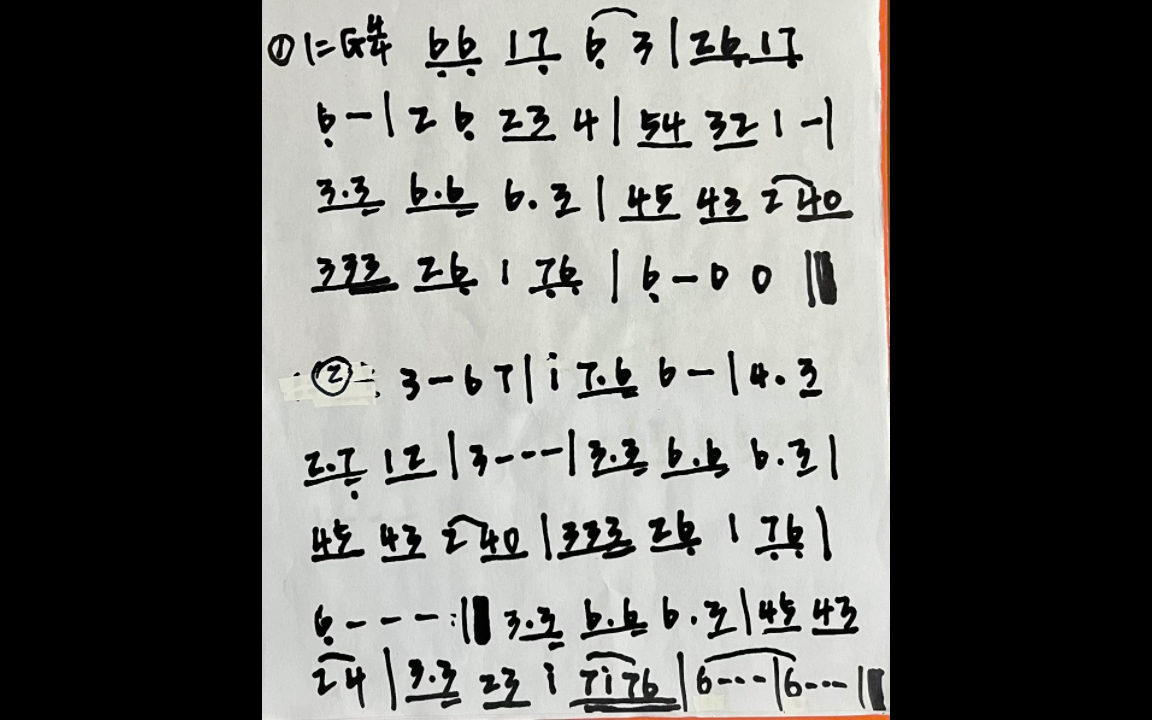 ① 1=G4/4 66 17 6 3 | 26 17
6 - | 2 6 23 4 | 54 32 1 - |
3.3 6.6 6.3 | 45 43 2 40
333 26 1 76 | 6 - 0 0 ||
② 3 - 6 7 | i 7.6 6 - | 4.3
2.7 12 | 3 - - - | 3.3 6.6 6.3 |
45 43 2 40 | 333 26 1 76 |
6 - - - :|| 3.3 6.6 6.3 | 45 43
24 | 3.3 23 i 7i76 | 6 - - - | 6 - - - ||